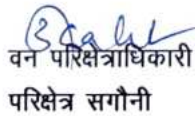 वन परिक्षेत्राधिकारी
परिक्षेत्र सगौनी